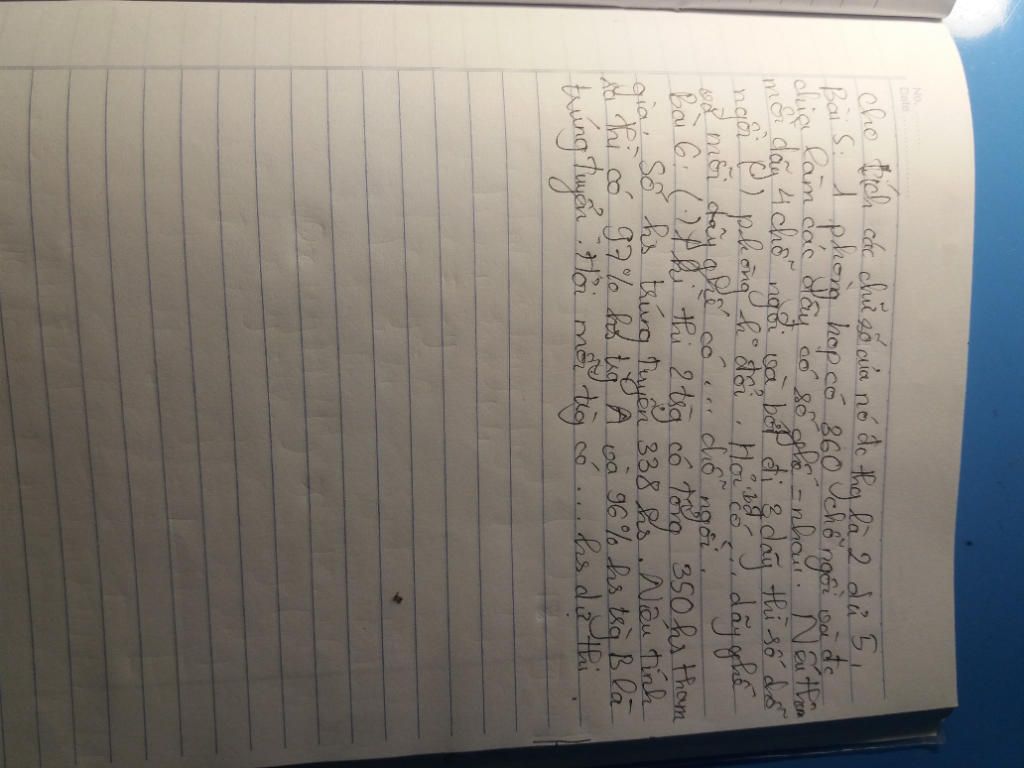 No.
Date
cho tích các chữ số của nó đc thg là 2 dư 5.
Bài 5. 1 phòng họp có 360 chỗ ngồi và đc
chia làm các dãy có số ghế = nhau. Nếu thêm
mỗi dãy 4 chỗ ngồi và bớt đi 3 dãy thì số chỗ
ngồi ở phòng ko đổi. Hỏi có ... dãy ghế
và mỗi dãy ghế có ... chỗ ngồi.
Bài 6. ( ) thi 2 trg có tổng 350 hs tham
gia. Số hs trúng tuyển 2 338 hs. Nếu tính
ra thì có 97% hs trg A và 96% hs trg B là
trúng tuyển. Hỏi mỗi trg có ... hs dự thi.